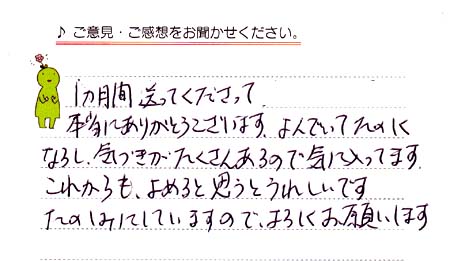 ♪ ご意見・ご感想をお聞かせください。
1カ月間 送ってくださって
本当にありがとうございます。よんでいてたのしく
なるし、気づきがたくさんあるので気に入ってます。
これからも、よめると思うとうれしいです
たのしみにしていますので、よろしくお願いします